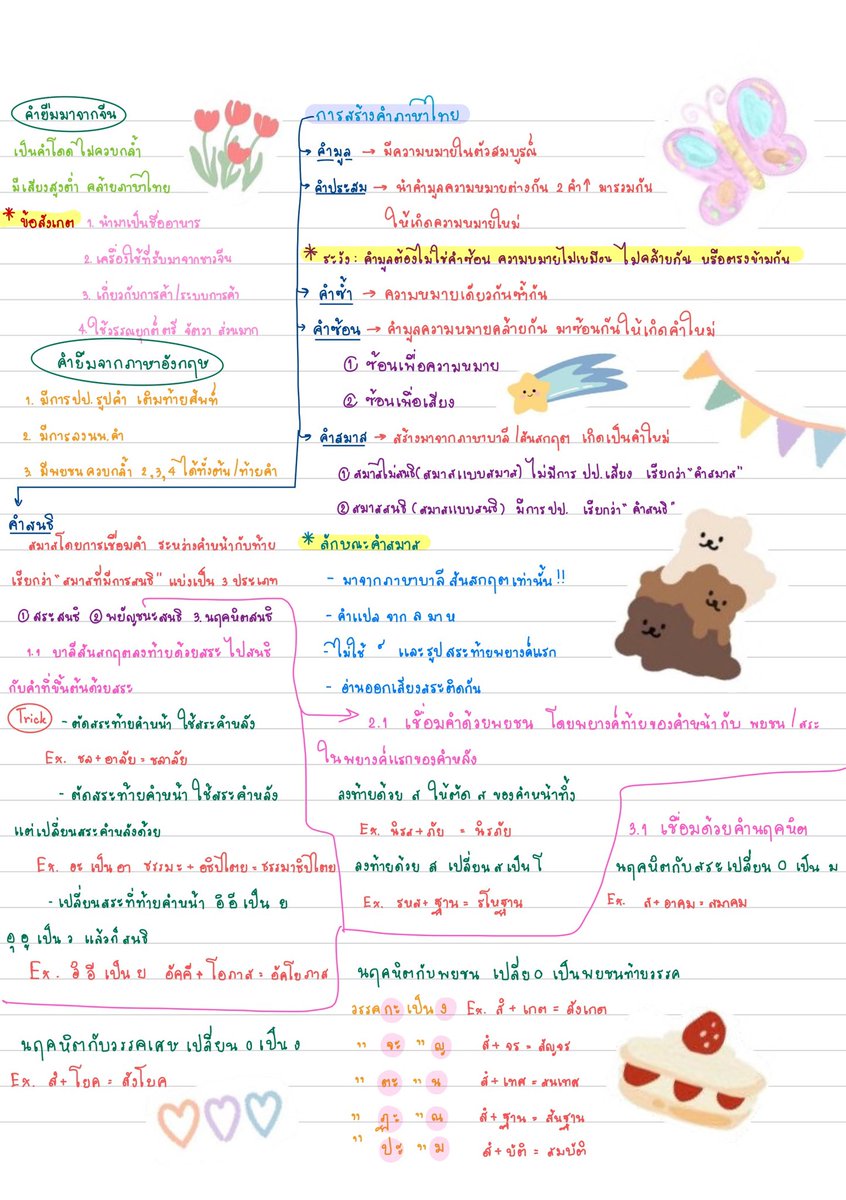 คำยืมมาจากจีน
เป็นคำโดด ไม่ควบกล้ำ
มีเสียงสูงต่ำ คล้ายภาษาไทย
* ข้อสังเกต 1. นำมาเป็นชื่ออาหาร
2. เครื่องใช้ที่รับมาจากชาวจีน
3. เกี่ยวกับการค้า/ระบบการค้า
4. ใช้วรรณยุกต์ ตรี จัตวา ส่วนมาก
คำยืมจากภาษาอังกฤษ
1. มีการปป.รูปคำ เติมท้ายศัพท์
2. มีการลงนน.คำ
3. มีพยชนควบกล้ำ 2,3,4 ได้ทั้งต้น/ท้ายคำ
การสร้างคำภาษาไทย
→ คำมูล → มีความหมายในตัวสมบูรณ์
→ คำประสม → นำคำมูลความหมายต่างกัน 2 คำ↑ มารวมกัน
ให้เกิดความหมายใหม่
* ระวัง : คำมูลต้องไม่ใช่คำซ้อน ความหมายไม่เหมือน ไม่คล้ายกัน หรือตรงข้ามกัน
→ คำซ้ำ → ความหมายเดียวกันซ้ำกัน
→ คำซ้อน → คำมูลความหมายคล้ายกัน มาซ้อนกันให้เกิดคำใหม่
① ซ้อนเพื่อความหมาย
② ซ้อนเพื่อเสียง
→ คำสมาส → สร้างมาจากภาษาบาลี/สันสกฤต เกิดเป็นคำใหม่
① สมาสไม่สนธิ(สมาสแบบสมาส) ไม่มีการ ปป.เสียง เรียกว่า "คำสมาส"
② สมาสสนธิ (สมาสแบบสนธิ) มีการปป. เรียกว่า "คำสนธิ"
คำสนธิ
สมาสโดยการเชื่อมคำ ระหว่างคำหน้ากับท้าย
เรียกว่า "สมาสที่มีการสนธิ" แบ่งเป็น 3 ประเภท
① สระสนธิ ② พยัญชนะสนธิ 3. นฤคหิตสนธิ
1.1 บาลีสันสกฤตลงท้ายด้วยสระ ไปสนธิ
กับคำที่ขึ้นต้นด้วยสระ
Trick - ตัดสระท้ายคำหน้า ใช้สระคำหลัง
Ex. ชล+อาลัย = ชลาลัย
- ตัดสระท้ายคำหน้า ใช้สระคำหลัง
แต่เปลี่ยนสระคำหลังด้วย
Ex. อะ เป็น อา ธรรมะ + อธิปไตย = ธรรมาธิปไตย
- เปลี่ยนสระที่ท้ายคำหน้า อิ อี เป็น ย
อุ อู เป็น ว แล้วก็สนธิ
Ex. อิ อี เป็น ย อัคคี + โอภาส = อัคโยภาส
* ลักษณะคำสมาส
- มาจากภาษาบาลี สันสกฤตเท่านั้น !!
- คำแปล จาก ล มา ห
- ไม่ใช้ ์ และรูปสระท้ายพยางค์แรก
- อ่านออกเสียงสระติดกัน
2.1 เชื่อมคำด้วยพยชน โดยพยางค์ท้ายของคำหน้ากับ พยชน/สระ
ในพยางค์แรกของคำหลัง
ลงท้ายด้วย ส ให้ตัด ส ของคำหน้าทิ้ง
Ex. นิรส+ภัย = นิรภัย
ลงท้ายด้วย ส เปลี่ยน ส เป็น โ
Ex. รหส+ ฐาน = รโหฐาน
3.1 เชื่อมด้วยคำนฤคหิต
นฤคหิตกับสระเปลี่ยน 0 เป็น ม
Ex. สํ+อาคม = สมาคม
นฤคหิตกับพยชน เปลี่ย 0 เป็นพยชนท้ายวรรค
วรรค กะ เป็น ง Ex. สํ + เกต = สังเกต
" จะ " ญ สํ + จร = สัญจร
" ตะ " น สํ + เทศ = สนเทศ
" ฏะ " ณ สํ + ฐาน = สัณฐาน
" ปะ " ม สํ + บัติ = สมบัติ
นฤคหิตกับวรรคเศษ เปลี่ยน 0 เป็น ง
Ex. สํ+ โยค = สังโยค